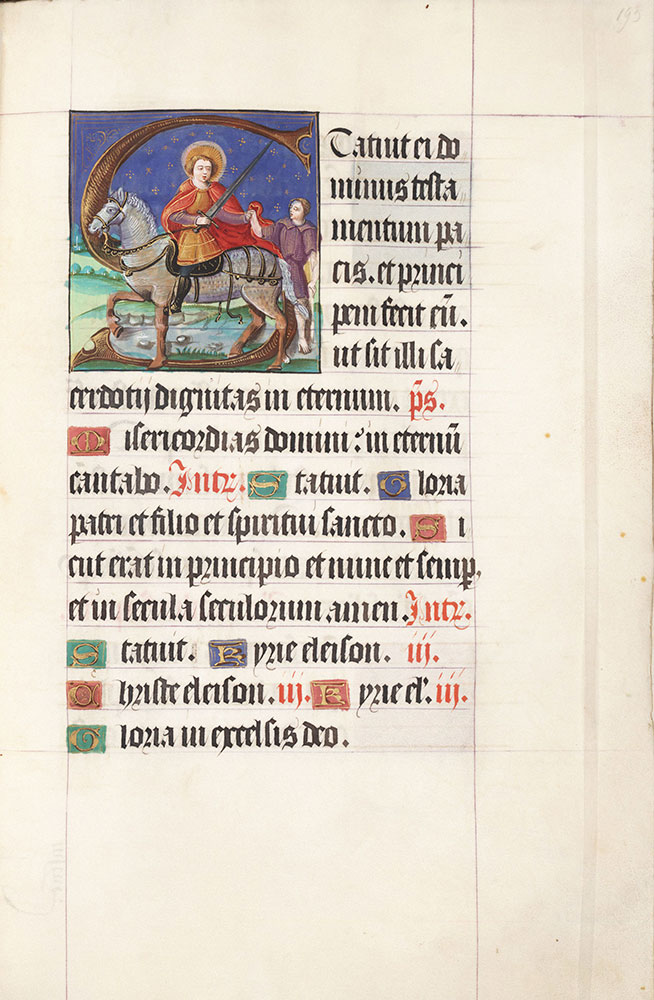 195
STatuit ei do
minus testa
mentum pa
cis. et princi
pem fecit eū.
ut sit illi sa
cerdotij dignitas in eternum. p̄s.
Misericordias domini: in eternū
cantabo. Intr. Statuit. Gloria
patri et filio et spiritui sancto. Si
cut erat in principio et nunc et semp,
et in secula seculorum amen. Intr.
Statuit. Kyrie eleison. iij.
Christe eleison. iij. Kyrie el'. iij.
Gloria in excelsis deo.